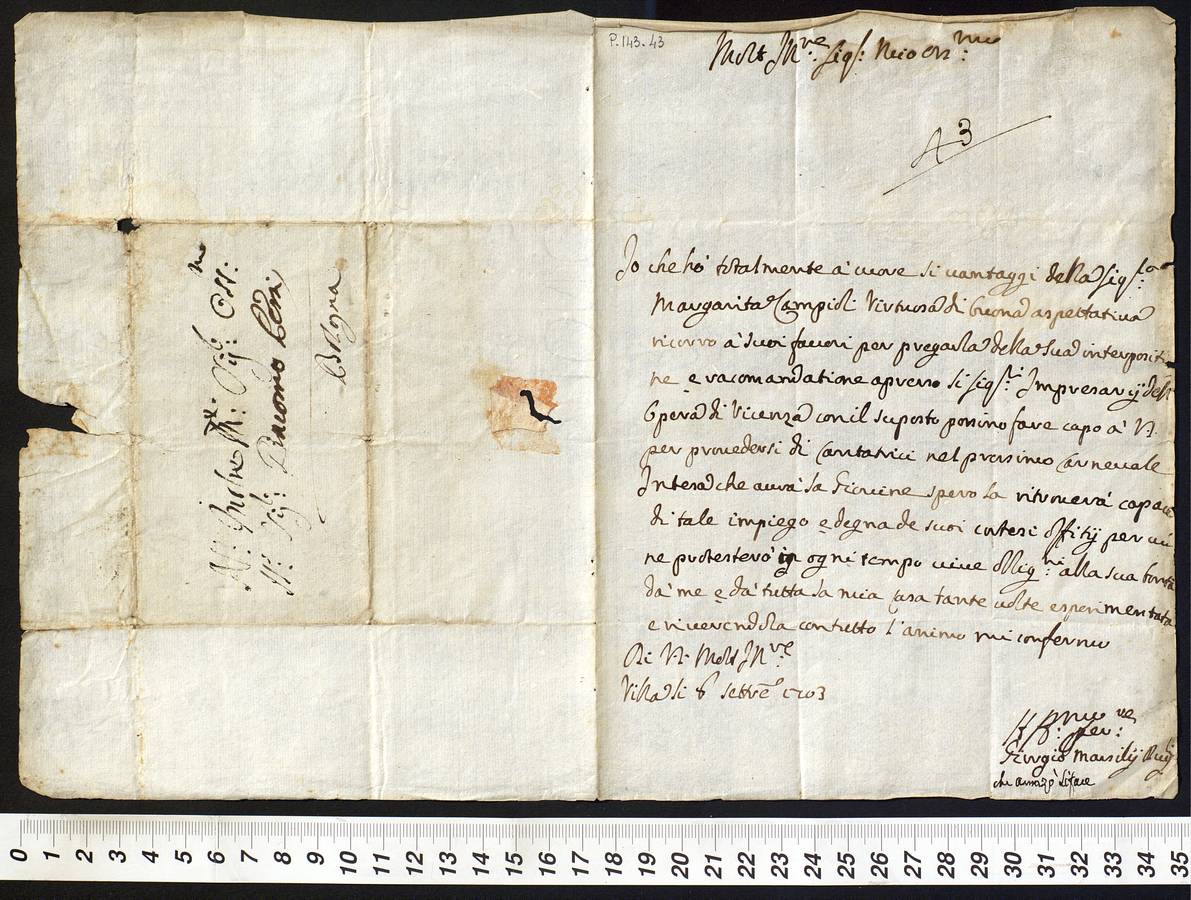 P.143.43
Molt Ill:re Sig:r mio Oss:mo
43
Io che hò totalmente à cuore li vantaggi della Sig:ra
Margarita Campioli Virtuosa di buona aspettativa
ricorro à suoi favori per pregarla della sua interpositio
ne e racomandatione apresso li Sig:ri Impresarij dell
Opera di Vicenza con il suposto possino fare capo à V.S.
per provedersi di Cantatrici nel prossimo Carnevale
Intesa che avrà la Giovine spero la ritroverà capace
di tale impiego e degna de suoi cortesi offitij per cui
ne protesterò in ogni tempo vive oblig:ni alla sua bontà
dà me e dà tutta la mia casa tante volte esperimentata
e riverendola con tutto l'animo mi confermo
Di V.S. Molt Ill:re
Villa li 6 Settre 1703
Giorgio Marsilij
che amazò Siface
Sig: Oss:mo
Il Sig: Giacomo
Bologna
0 1 2 3 4 5 6 7 8 9 10 11 12 13 14 15 16 17 18 19 20 21 22 23 24 25 26 27 28 29 30 31 32 33 34 35